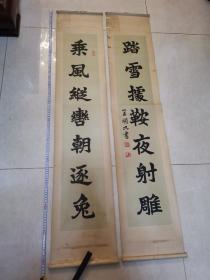 踏雪據鞍夜射雕
乘風縱轡朝逐兔